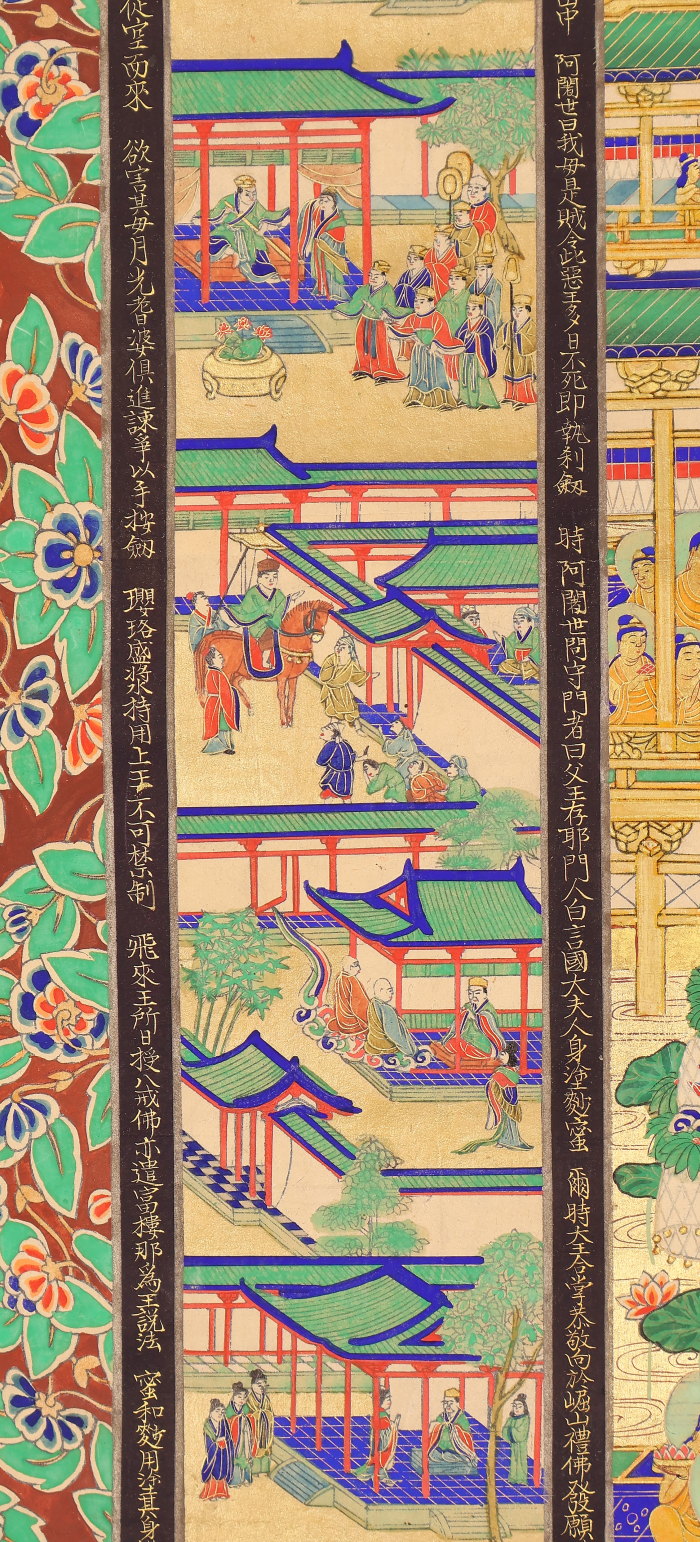 阿闍世曰我母是賊令此惡王多日不死即執利劔　時阿闍世問守門者曰父王存耶門人白言國大夫人身塗麨蜜　爾時大王合掌恭敬向於崛山禮佛發願
從空而來　欲害其母月光耆婆俱進諫爭以手按劔　瓔珞盛漿持用上王不可禁制　飛來王所日授八戒佛亦遣富樓那爲王説法　蜜和麨用塗其身